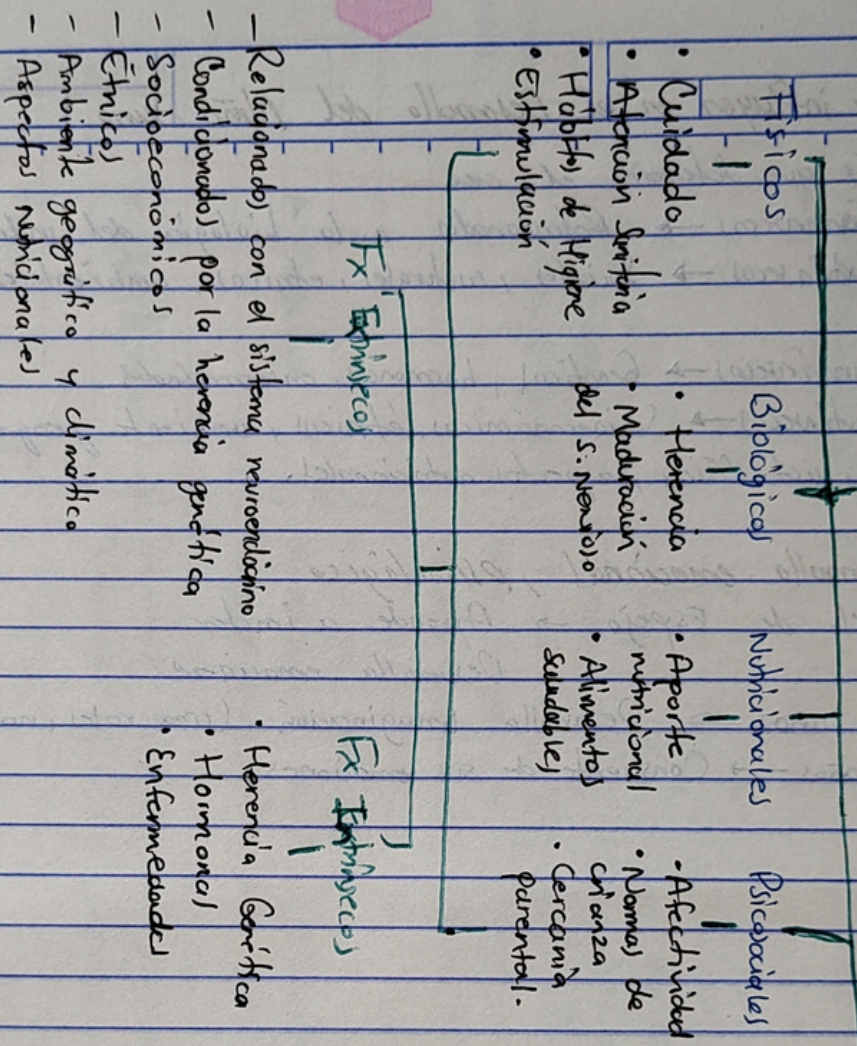 Físicos
• Cuidado
• Atención Sanitaria
• Hábitos de Higiene
• Estimulación
Biológicos
• Herencia
• Maduración
del S. Nervioso
Nutricionales
• Aporte
nutricional
• Alimentos
saludables
Psicosociales
• Afectividad
• Normas de
crianza
• Cercanía
parental.
Fx Extrínsecos
- Relacionados con el sistema neuroendocrino
- Condicionados por la herencia genética
- Socioeconómicos
- Étnicos
- Ambiente geográfico y climático
- Aspectos nutricionales
Fx Intrínsecos
• Herencia Genética
• Hormonas
• Enfermedades